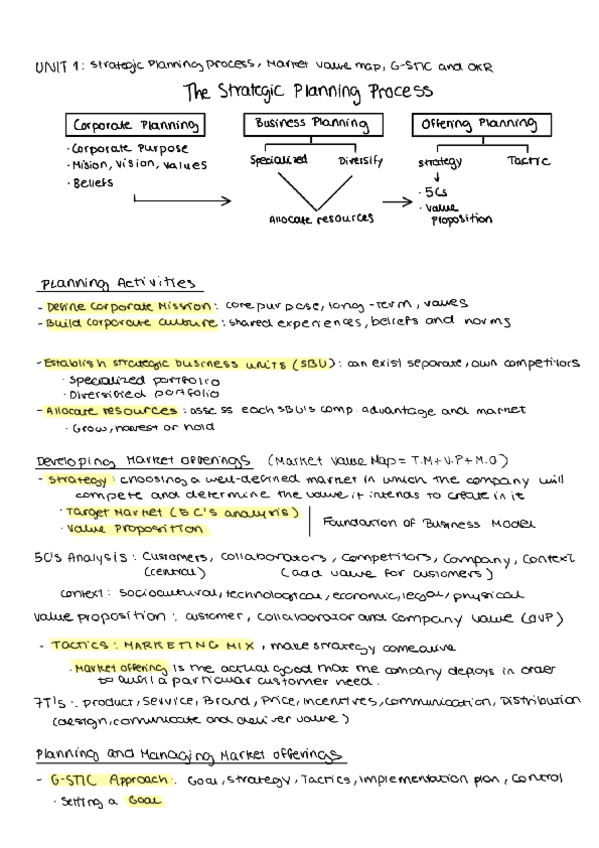 UNIT 1: Strategic Planning Process, Market Value map, G-STIC and OKR
The Strategic Planning Process
Corporate Planning
Business Planning
Offering Planning
· Corporate Purpose
· Mision, vision, values
· Beliefs
Specialized
Diversify
Allocate resources
strategy
Tactic
· 5Cs
· Value Proposition
Planning Activities
- Define Corporate Mission: core purpose, long-term, values
- Build corporate culture: shared experiences, beliefs and norms
- Establish strategic business units (SBU): can exist separate, own competitors
· Specialized portfolio
· Diversified portfolio
- Allocate resources: assess each SBU's comp. advantage and market
· Grow, harvest or hold
Developing Market Offerings (Market Value Map = T.M + V.P + M.O)
- Strategy: choosing a well-defined market in which the company will
compete and determine the value it intends to create in it
· Target Market (5 C's analysis)
· Value Proposition
Foundation of Business Model
5C's Analysis: Customers, collaborators, competitors, company, context
(central) (add value for customers)
context: sociocultural, technological, economic, legal, physical
Value proposition: customer, collaborator and company value (OVP)
- Tactics: MARKETING MIX, make strategy come alive
· Market offering is the actual good that the company deploys in order
to fulfill a particular customer need.
7T's: product, Service, Brand, Price, Incentives, communication, Distribution
(design, comunicate and deliver value)
Planning and Managing Market Offerings
- G-STIC Approach: Goal, strategy, Tactics, Implementation plan, control
· Setting a Goal